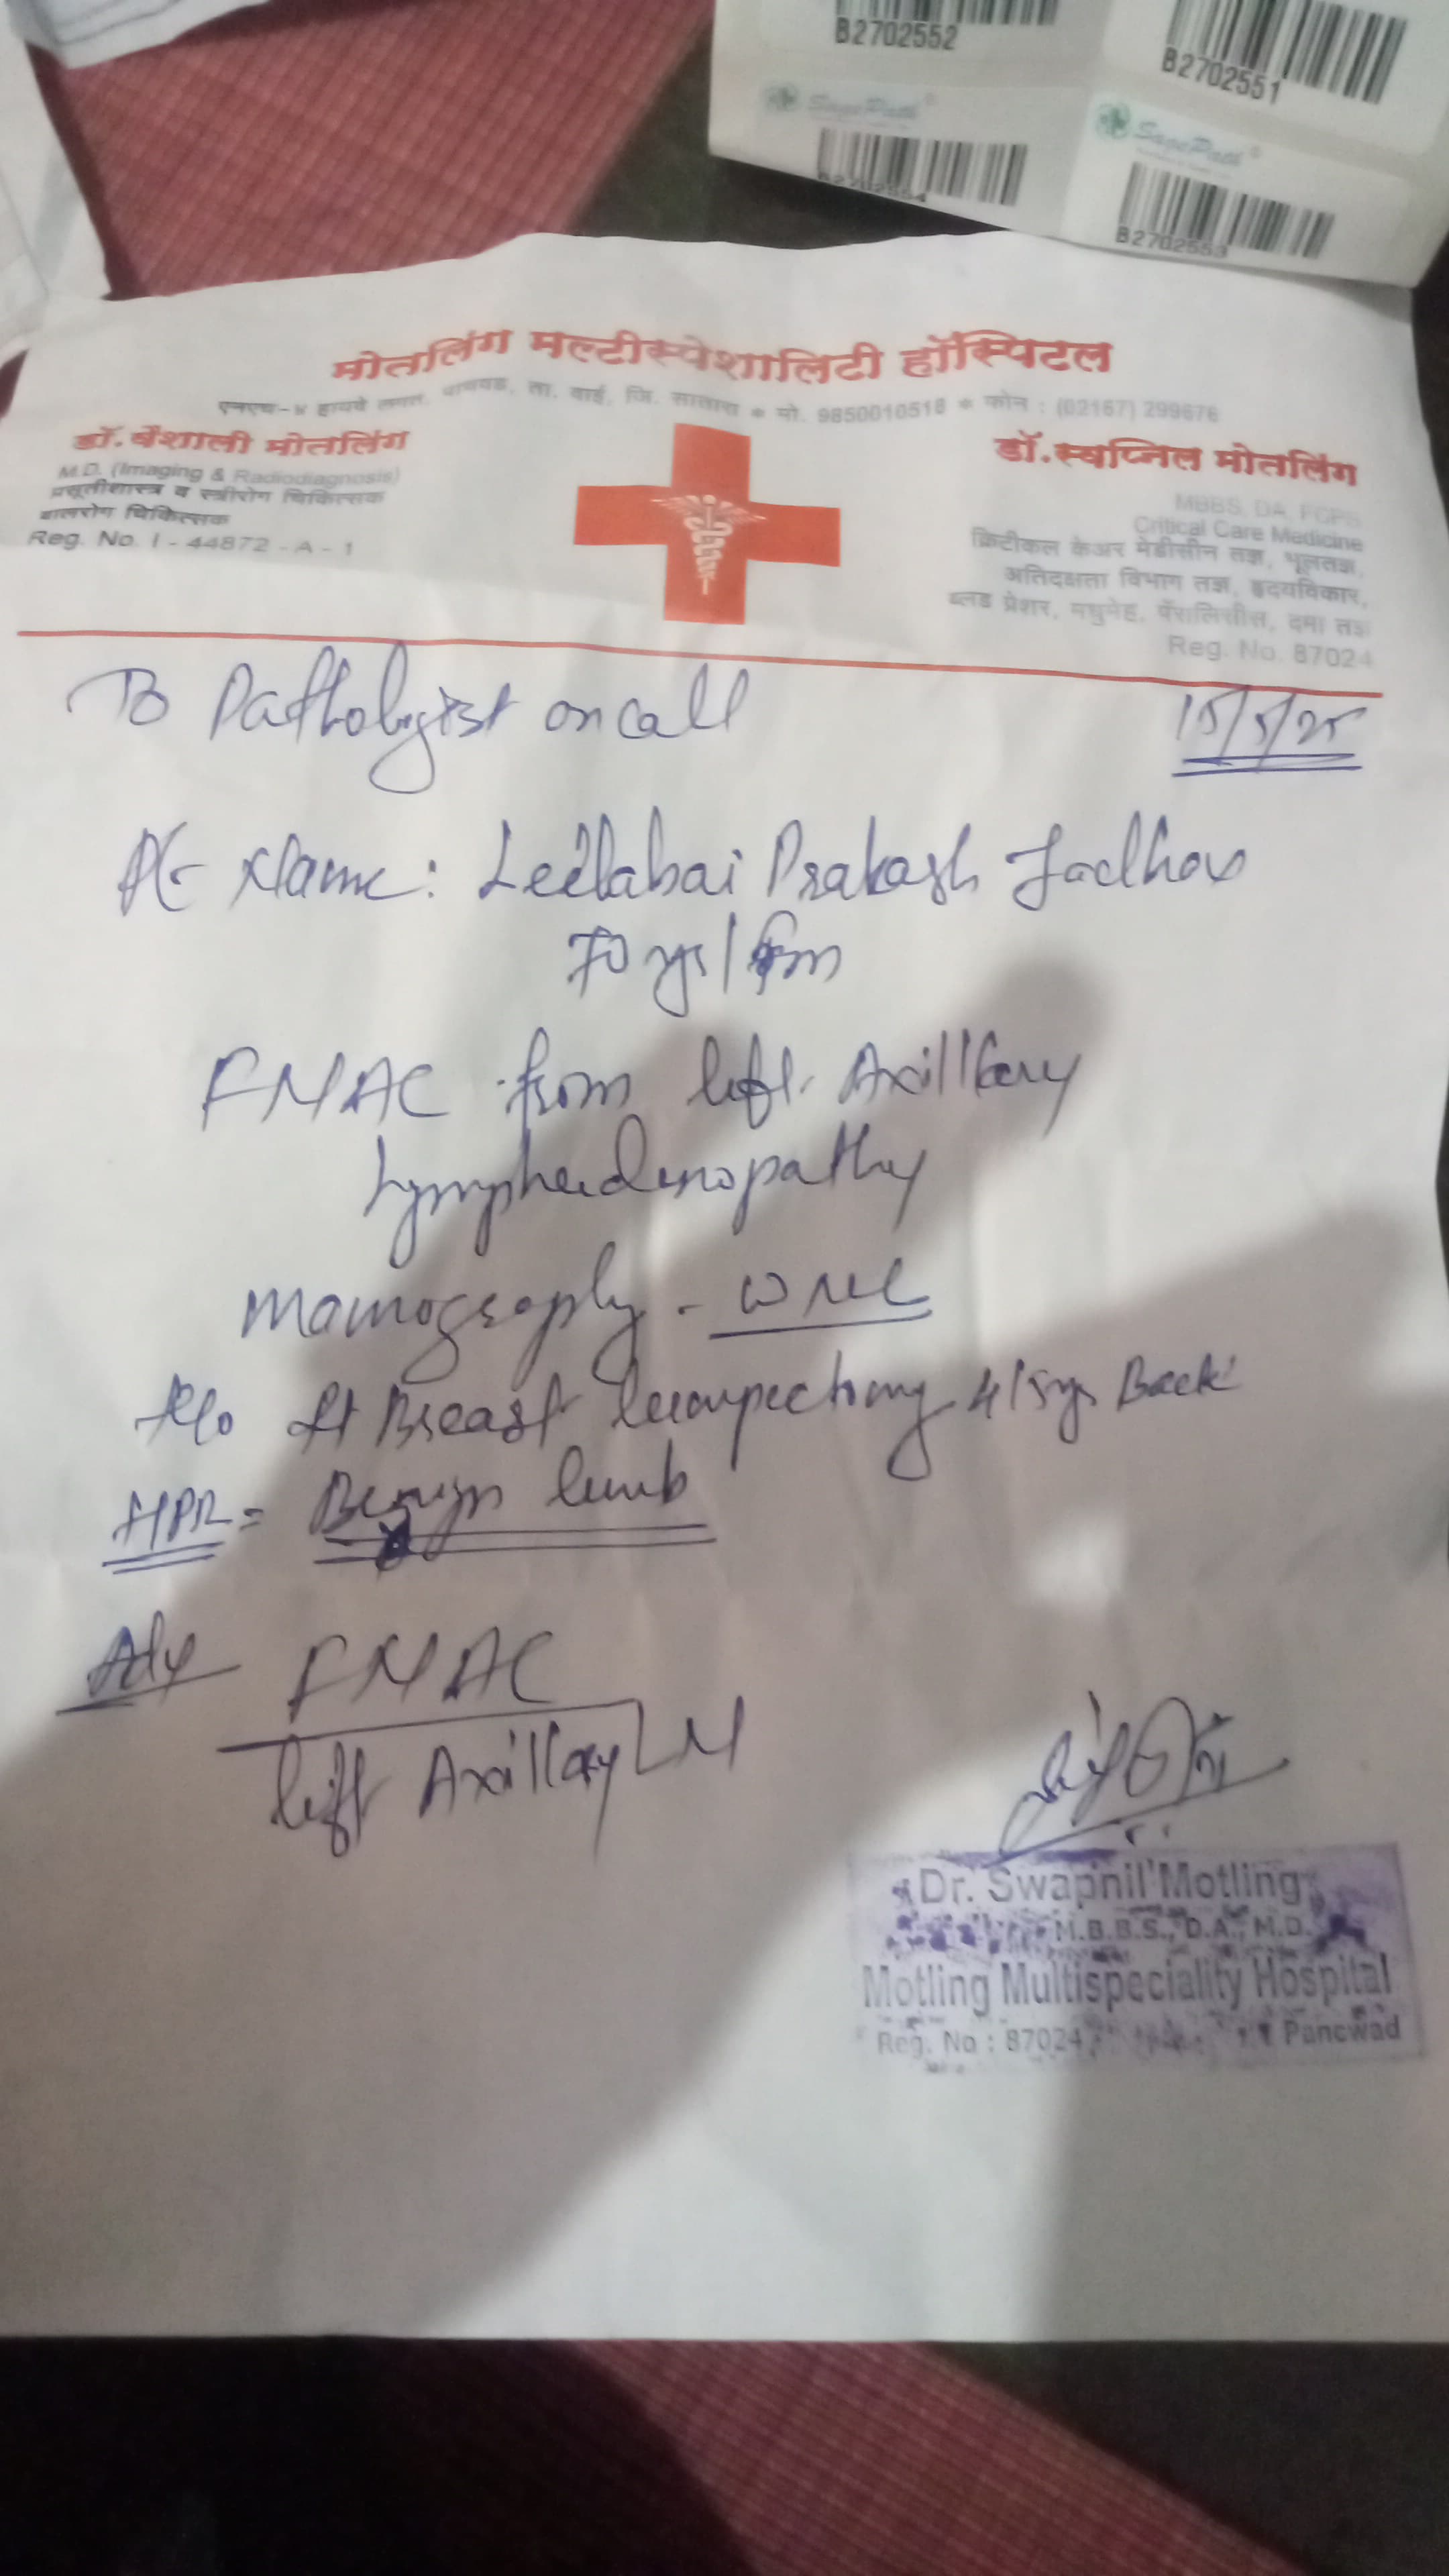 B2702552
B2702551
SagePath
SagePath
B2702554
B2702553
मोतलिंग मल्टीस्पेशालिटी हॉस्पिटल
एनएच-४ हायवे लगत, पाचवड, ता. वाई, जि. सातारा * मो. 9850010518 * फोन : (02167) 299676
डॉ. वैशाली मोतलिंग
M.D. (Imaging & Radiodiagnosis)
प्रसूतीशास्त्र व स्त्रीरोग चिकित्सक
बालरोग चिकित्सक
Reg. No. I - 44872 - A - 1
डॉ. स्वप्निल मोतलिंग
MBBS, DA, FCPS
Critical Care Medicine
क्रिटीकल केअर मेडीसीन तज्ञ, भूलतज्ञ,
अतिदक्षता विभाग तज्ञ, हृदयविकार,
ब्लड प्रेशर, मधुमेह, पॅरालिसीस, दमा तज्ञ
Reg. No. 87024
To Pathologist on call
15/5/25
Pt Name: Leelabai Prakash Jadhav
70 yrs / fm
FNAC from left Axillary
Lymphadenopathy
Mamography - WNL
H/o Lt Breast lumpectomy 4/5 yrs Back
HPR = Benign lumb
Adv FNAC
left Axillary LN
Dr. Swapnil Motling
M.B.B.S., D.A., M.D.
Motling Multispeciality Hospital
Reg. No : 87024 Pancwad